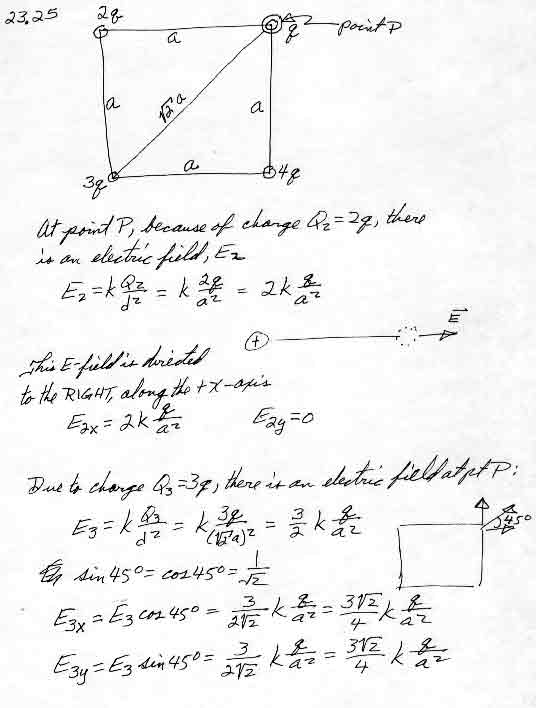 23.25
2q
a
q
point P
a
√2 a
a
a
3q
4q
At point P, because of charge Q₂ = 2q, there
is an electric field, E₂
E₂ = k Q₂/d² = k 2q/a² = 2k q/a²
+
E⃗
This E-field is directed
to the RIGHT, along the +x-axis
E₂ₓ = 2k q/a²    E₂y = 0
Due to charge Q₃ = 3q, there is an electric field at pt P:
E₃ = k Q₃/d² = k 3q/(√2 a)² = 3/2 k q/a²
45°
sin 45° = cos 45° = 1/√2
E₃ₓ = E₃ cos 45° = 3/2√2 k q/a² = 3√2/4 k q/a²
E₃y = E₃ sin 45° = 3/2√2 k q/a² = 3√2/4 k q/a²